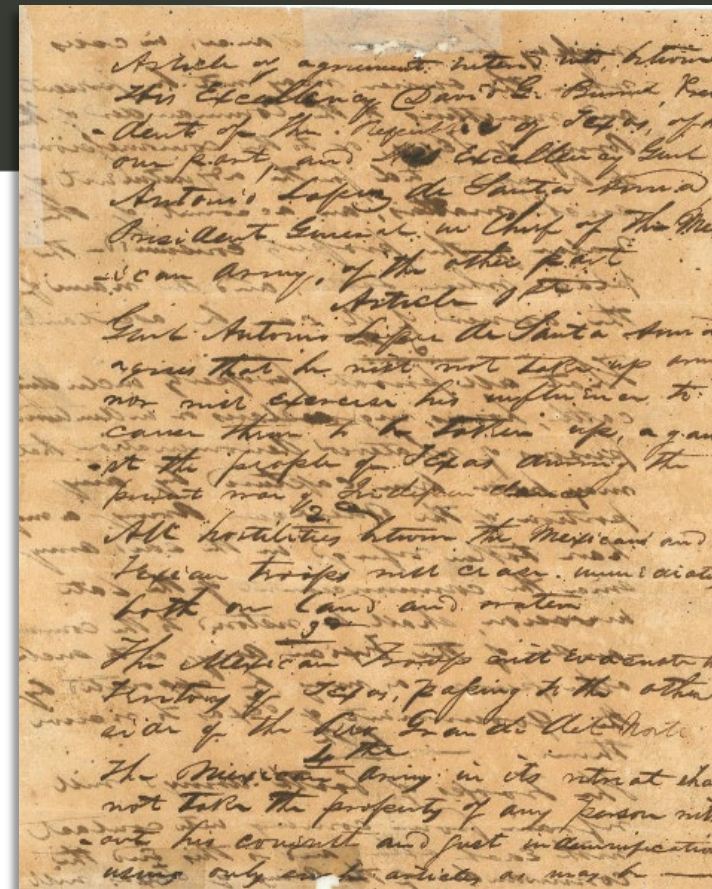 Article of agreement entered into between
His Excellency David G. Burnet, Presi
-dent of the Republic of Texas, of
one part, and His Excellency Genl
Antonio Lopez de Santa Anna
President General in Chief of the Mex
-ican Army, of the other part
Article 1
Genl Antonio Lopez de Santa Anna
agrees that he will not take up arms
nor will exercise his influence to
cause them to be taken up, again
-st the people of Texas during the
present war of Independence
2
All hostilities between the Mexican and
Texian troops will cease immediate
both on land and water
3
The Mexican Troops will evacuate the
Territory of Texas, passing to the other
side of the Rio Grande del Norte
4th
The Mexican Army in its retreat shall
not take the property of any person with
-out his consent and just indemnification
using only such articles as may be